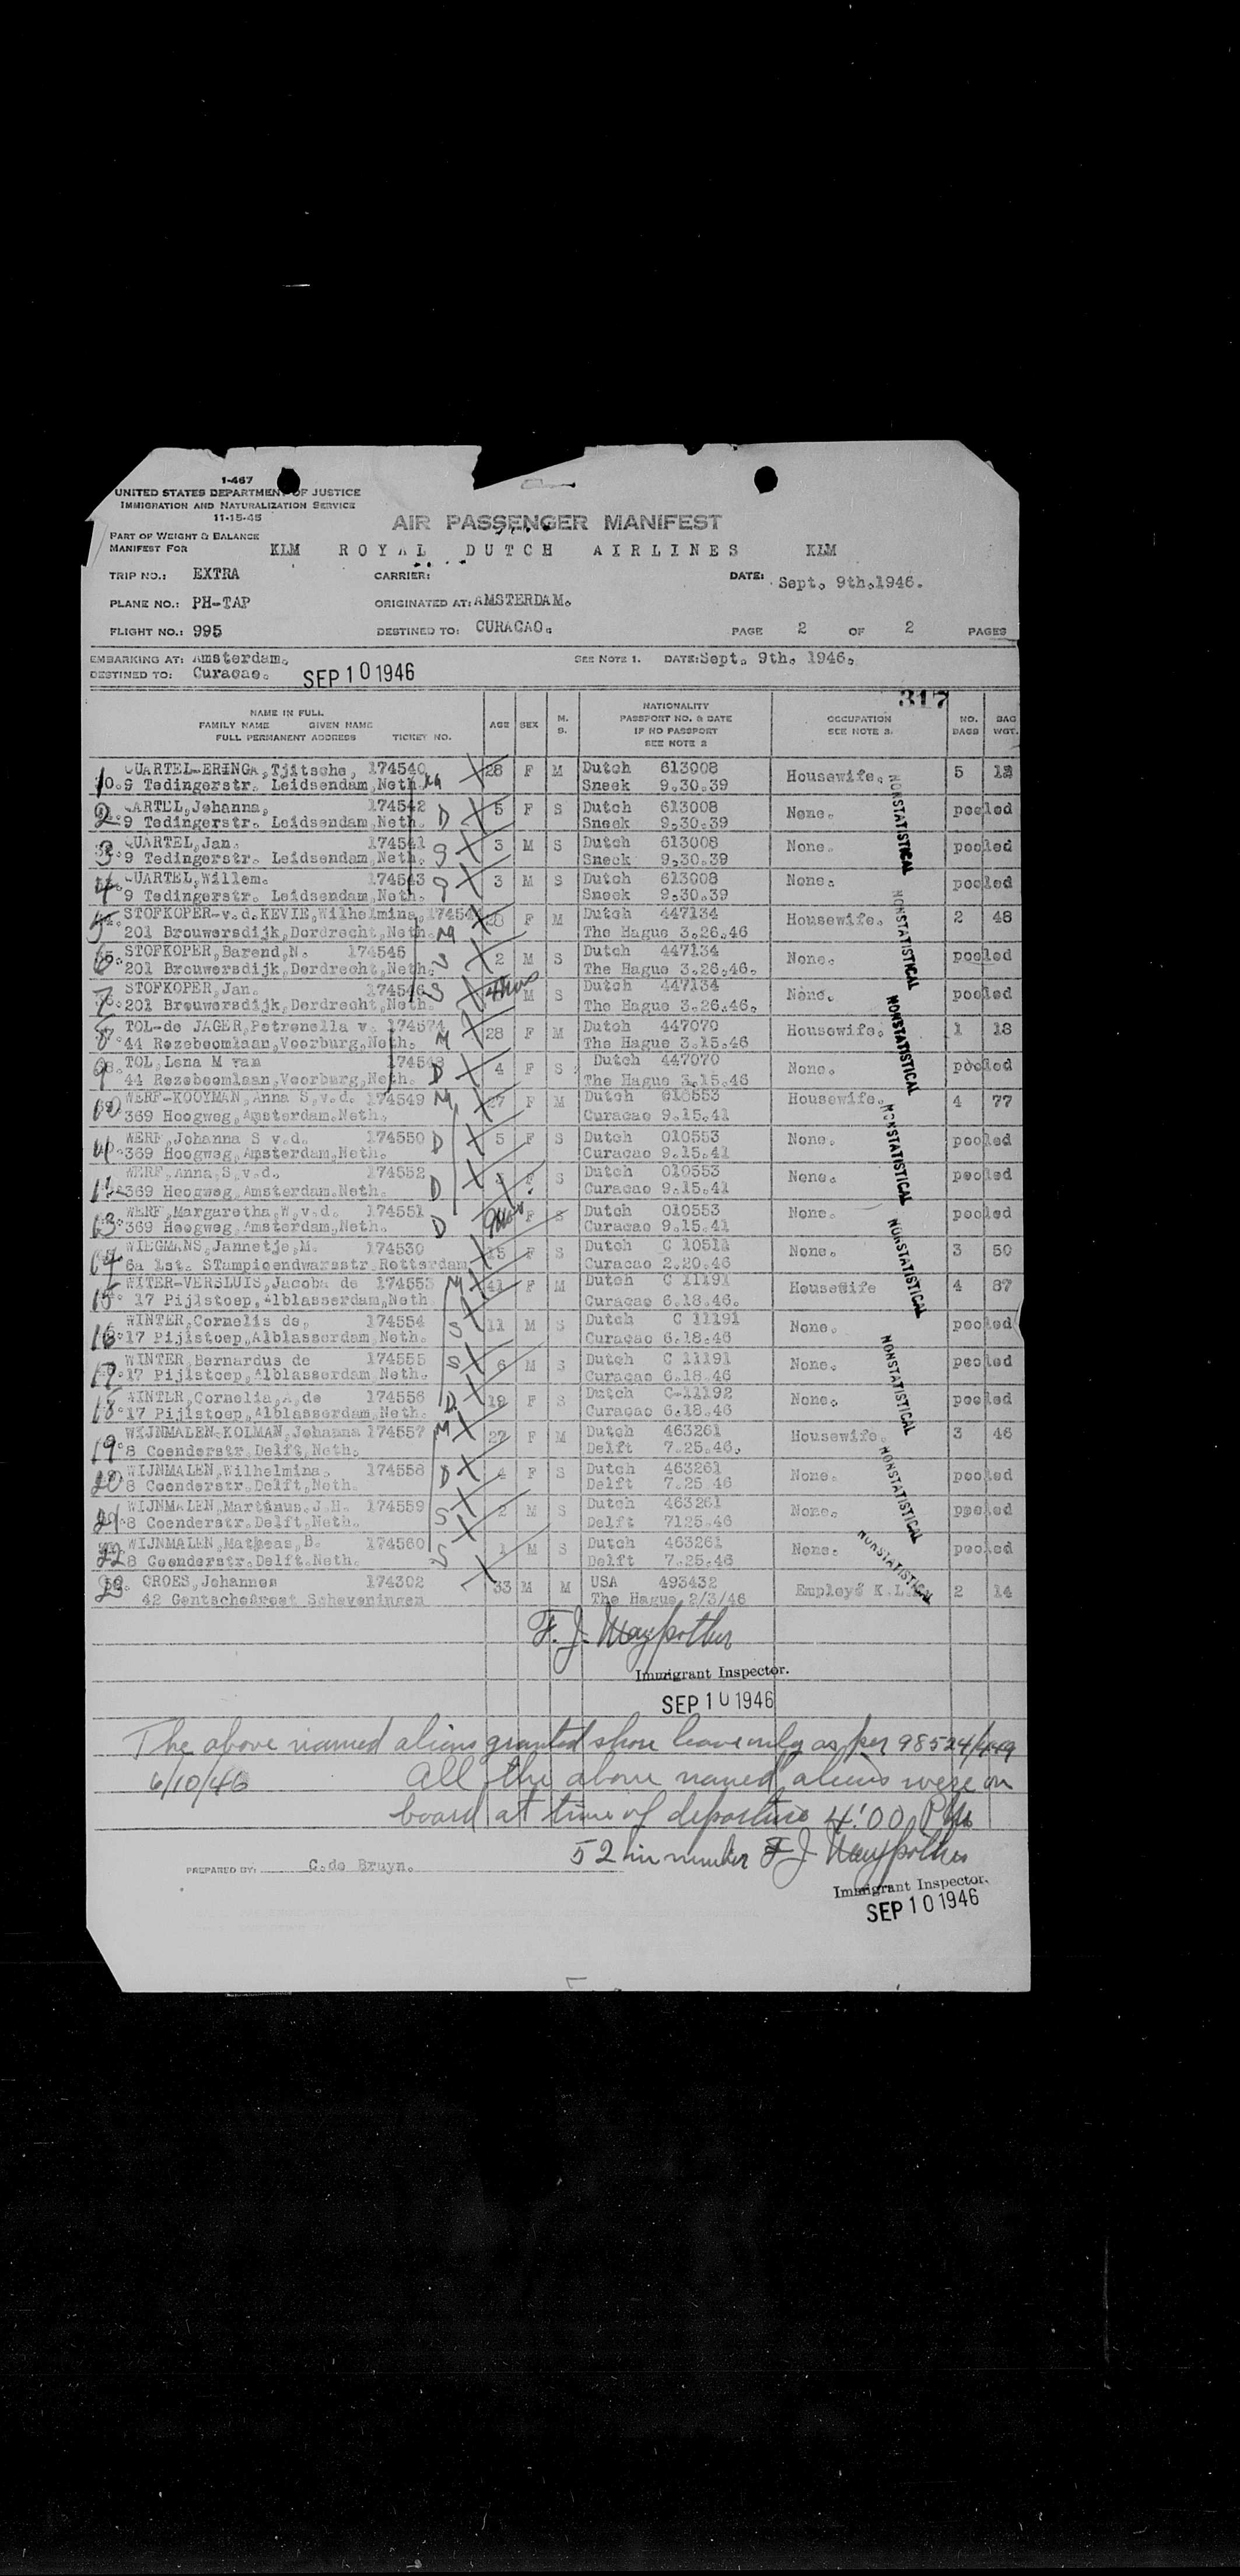 1-467
UNITED STATES DEPARTMENT OF JUSTICE
IMMIGRATION AND NATURALIZATION SERVICE
11-15-45
AIR PASSENGER MANIFEST
PART OF WEIGHT & BALANCE
MANIFEST FOR KLM ROYAL DUTCH AIRLINES KLM
TRIP NO.: EXTRA CARRIER: DATE: Sept. 9th.1946.
PLANE NO.: PH-TAP ORIGINATED AT: AMSTERDAM.
FLIGHT NO.: 995 DESTINED TO: CURACAO. PAGE 2 OF 2 PAGES
EMBARKING AT: Amsterdam. SEE NOTE 1. DATE: Sept. 9th. 1946.
DESTINED TO: Curacao. SEP 10 1946
317
NAME IN FULL
FAMILY NAME GIVEN NAME
FULL PERMANENT ADDRESS TICKET NO. AGE SEX M. S. NATIONALITY PASSPORT NO. & DATE IF NO PASSPORT SEE NOTE 2 OCCUPATION SEE NOTE 2. NO. BAGS BAG WGT.
1 QUARTEL-ERINGA,Tjitsche, 174540 28 F M Dutch 613008 Housewife. 5
9 Tedingerstr. Leidsendam,Neth. M Sneek 9.30.39
2 QUARTEL,Johanna, 174542 D 5 F S Dutch 613008 None. pooled
9 Tedingerstr. Leidsendam,Neth. Sneek 9.30.39
3 QUARTEL,Jan. 174541 S 3 M S Dutch 613008 None. pooled
9 Tedingerstr. Leidsendam,Neth. Sneek 9.30.39
4 QUARTEL,Willem. 174543 S 3 M S Dutch 613008 None. pooled
9 Tedingerstr. Leidsendam,Neth. Sneek 9.30.39
5 STOFKOPER-v.d.KEVIE,Wilhelmina, 28 F M Dutch 447134 Housewife. 2 48
201 Brouwersdijk,Dordrecht,Neth. M The Hague 3.26.46
6 STOFKOPER,Barend,N. 174545 S 2 M S Dutch 447134 None. pooled
201 Brouwersdijk,Dordrecht,Neth. The Hague 3.26.46.
7 STOFKOPER,Jan. 174546 S M S Dutch 447134 None. pooled
201 Brouwersdijk,Dordrecht,Neth. The Hague 3.26.46.
8 TOL-de JAGER,Petronella v. 174574 M 28 F M Dutch 447070 Housewife. 1 18
44 Rozeboomlaan,Voorburg,Neth. The Hague 3.15.46
9 TOL,Lena M van D 4 F S Dutch 447070 None. pooled
44 Rozeboomlaan,Voorburg,Neth. The Hague 3.15.46
10 WERF-KOOYMAN,Anna S.v.d. 174549 M 27 F M Dutch 010553 Housewife. 4 77
369 Hoogweg,Amsterdam.Neth. Curacao 9.15.41
11 WERF,Johanna S v.d. 174550 D 5 F S Dutch 010553 None. pooled
369 Hoogweg,Amsterdam,Neth. Curacao 9.15.41
12 WERF,Anna,S,v.d. 174552 D F S Dutch 010553 None. pooled
369 Hoogweg,Amsterdam.Neth. Curacao 9.15.41
13 WERF,Margaretha,W.v.d. 174551 D 9 mos F S Dutch 010553 None. pooled
369 Hoogweg,Amsterdam,Neth. Curacao 9.15.41
14 WIEGMANS,Jannetje,M. 174530 15 F S Dutch C 10511 None. 3 50
6a 1st. STampioendwarsstr.Rotterdam Curacao 2.20.46
15 WITER-VERSLUIS,Jacoba de 174553 M 41 F M Dutch C 11191 Housewife 4 87
17 Pijlstoep,Alblasserdam,Neth Curacao 6.18.46.
16 WINTER,Cornelis de, 174554 S 11 M S Dutch C 11191 None. pooled
17 Pijlstoep,Alblasserdam,Neth. Curaçao 6.18.46
17 WINTER,Bernardus de 174555 S 6 M S Dutch C 11191 None. pooled
17 Pijlstoep,Alblasserdam Neth. Curacao 6.18.46
18 WINTER,Cornelia,A,de 174556 D 19 F S Dutch C-11192 None. pooled
17 Pijlstoep,Alblasserdam,Neth. Curacao 6.18.46
19 WIJNMALEN-KOLMAN,Johanna 174557 M 27 F M Dutch 463261 Housewife. 3 46
8 Coenderstr.Delft,Neth. Delft 7.25.46.
20 WIJNMALEN,Wilhelmina. 174558 D 4 F S Dutch 463261 None. pooled
8 Coenderstr.Delft,Neth. Delft 7.25 46
21 WIJNMALEN,Martinus.J.H. 174559 S 2 M S Dutch 463261 None. pooled
8 Coenderstr.Delft,Neth. Delft 7125.46
22 WIJNMALEN,Matheas,B. 174560 S 1 M S Dutch 463261 None. pooled
8 Coenderstr.Delft.Neth. Delft 7.25.46
23 CROES,Johannes 174302 33 M M USA 493432 Employé K.L. 2 14
42 Gentschestreet Scheveningen The Hague 2/3/46
NONSTATISTICAL
NONSTATISTICAL
NONSTATISTICAL
NONSTATISTICAL
NONSTATISTICAL
NONSTATISTICAL
NONSTATISTICAL
NONSTATISTICAL
F. J.
Immigrant Inspector.
SEP 10 1946
The above named aliens granted shore leave only as per 98524/449
6/10/46 All the above named aliens were on
board at time of departure 4:00 P.M.
52 in number F J
PREPARED BY: C.de Bruyn.
Immigrant Inspector.
SEP 10 1946